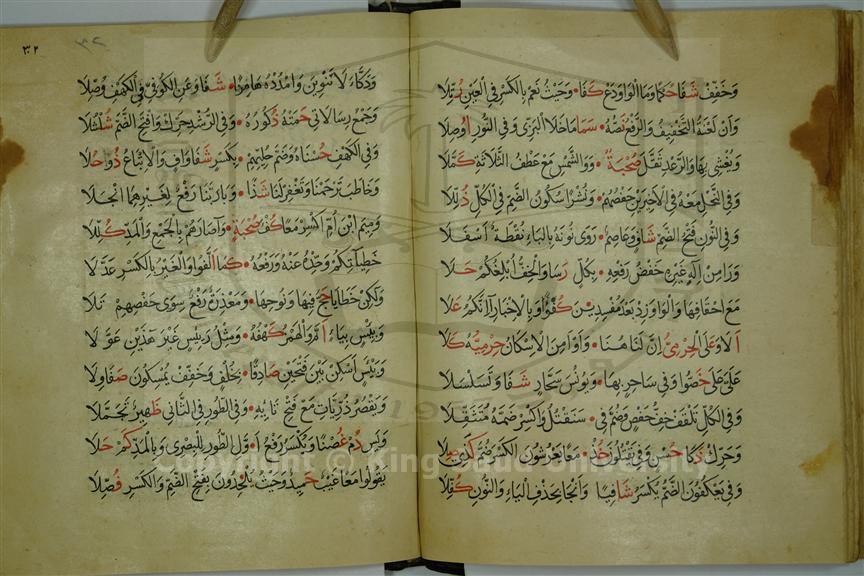 وَخَفِّفْ شَفَا حُكْمًا وَمَا الْوَاوَ دَعْ كَفَا • وَحَيْثُ نَعَمْ بِالْكَسْرِ فِي الْعَيْنِ رُتِّلَا
وَأَن لَعْنَةُ التَّخْفِيفُ وَالرَّفْعُ نَصُّهُ • سَمَا مَا خَلَا الْبَزِّي وَفِي النُّورِ أُوصِلَا
وَيُغْشِي بِهَا وَالرَّعْدِ ثَقَّلَ صُحْبَةٌ • وَوَالشَّمْسُ مَعْ عَطْفِ الثَّلَاثَةِ كَمَّلَا
وَفِي النَّحْلِ مَعْهُ فِي الْأَخِيرَيْنِ حَفْصُهُمْ • وَنُشْرًا سُكُونُ الضَّمِّ فِي الْكُلِّ ذُلِّلَا
وَفِي النُّونِ فَتْحُ الضَّمِّ شَافٍ وَعَاصِمٌ • رَوَى نُونَهُ بِالْبَاءِ نُقْطَةٌ أَسْفَلَا
وَرَا مِنْ إِلَهٍ غَيْرُهُ خَفْضُ رَفْعِهِ • بِكُلٍّ رَسَا وَالْخِفُّ أُبْلِغُكُمْ حَلَا
مَعَ احْقَافِهَا وَالْوَاوَ زِدْ بَعْدَ مُفْسِدِينَ كُفْؤًا وَبِالْإِخْبَارِ إِنَّكُمْ عَلَا
أَلَا وَعَلَى الْحِرْمِيُّ إِنَّ لَنَا هُنَا • وَأَوْ أَمِنَ الْإِسْكَانُ حِرْمِيُّهُ كَلَا
عَلَيَّ عَلَى خَصُّوا وَفِي سَاحِرٍ بِهَا • وَيُونُسَ سَحَّارٍ شَفَا وَتَسَلْسَلَا
وَفِي الْكُلِّ تَلْقَفْ خِفُّ حَفْصٍ وَضُمَّ فِي • سَنَقْتُلُ وَاكْسِرْ ضَمَّهُ مُتَثَقِّلَا
وَحَرِّكْ ذَكَا حُسْنٍ وَفِي يَقْتُلُونَ خُذْ • مَعًا يَعْرِشُونَ الْكَسْرُ ضُمَّ كَذِي صِلَا
وَفِي يَعْكُفُونَ الضَّمُّ يُكْسَرُ شَافِيًا وَأَنْجَا بِحَذْفِ الْيَاءِ وَالنُّونِ كُفِّلَا
٣٢
وَدَكَّاءَ لَا تَنْوِينَ وَامْدُدْهُ هَامِزًا • شَفَا وَعَنِ الْكُوفِيِّ فِي الْكَهْفِ وُصِّلَا
وَجَمْعُ رِسَالَاتِي حَمَتْهُ ذُكُورُهُ • وَفِي الرُّشْدِ حَرِّكْ وَافْتَحِ الضَّمَّ شُلْشُلَا
وَفِي الْكَهْفِ حُسْنَاهُ وَضَمُّ حُلِيِّهِمْ • بِكَسْرٍ شَفَا وَافٍ وَالْإِتْبَاعُ ذُو حُلَا
وَخَاطَبَ تَرْحَمْنَا وَتَغْفِرْ لَنَا شَذًا • وَبَا رَبَّنَا رَفْعٌ لِغَيْرِهِمَا انْجَلَا
وَمِيمَ ابْنَ أُمَّ اكْسِرْ مَعًا كُفْءَ صُحْبَةٍ • وَآصَارَهُمْ بِالْجَمْعِ وَالْمَدِّ كُلِّلَا
خَطِيآتُكُمْ وَحِّدْهُ عَنْهُ وَرَفْعُهُ • كَمَا أَلَّفُوا وَالْغَيْرُ بِالْكَسْرِ عَدَّلَا
وَلَكِنْ خَطَايَا حَجَّ فِيهَا وَنُوحِهَا • وَمَعْذِرَةً رَفْعٌ سِوَى حَفْصِهِمْ تَلَا
وَبِيسٍ بِيَاءٍ أَمَّ وَالْهَمْزُ كَهْفُهُ • وَمِثْلُ رَئِيسٍ غَيْرُ هَذَيْنِ عَوَّلَا
وَبَيْئَسٍ اسْكِنْ بَيْنَ فَتْحَيْنِ صَادِقًا • بِخُلْفٍ وَخَفِّفْ يُمْسِكُونَ صَفَا وَلَا
وَيَقْصُرُ ذُرِّيَّاتِ مَعْ فَتْحِ تَائِهِ • وَفِي الطُّورِ فِي الثَّانِي ظَهِيرٌ تَحَمَّلَا
وَيَاسِينَ دُمْ غُصْنًا وَيُكْسَرُ رَفْعُ أَوَّلِ الطُّورِ لِلْبَصْرِي وَبِالْمَدِّ كَمْ حَلَا
يَقُولُوا مَعًا غَيْبٌ حَمِيدٌ وَحَيْثُ يُلْحِدُونَ بِفَتْحِ الضَّمِّ وَالْكَسْرِ فُصِّلَا
Copyright © King Saud University